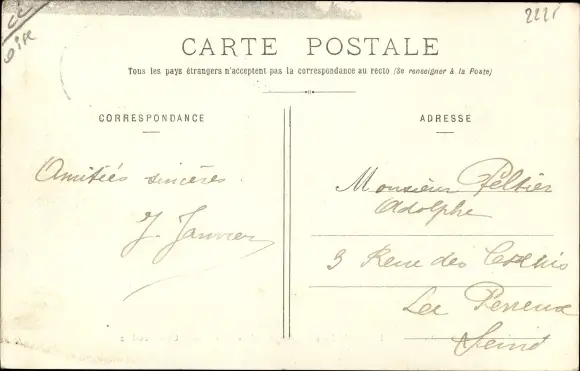 222
OISE
CARTE POSTALE
Tous les pays étrangers n'acceptent pas la correspondance au recto (Se renseigner à la Poste)
CORRESPONDANCE
Amitiés sincères.
J. Janvier
ADRESSE
Monsieur Peltier
Adolphe
3 Rue des
Le Perreux
Seine